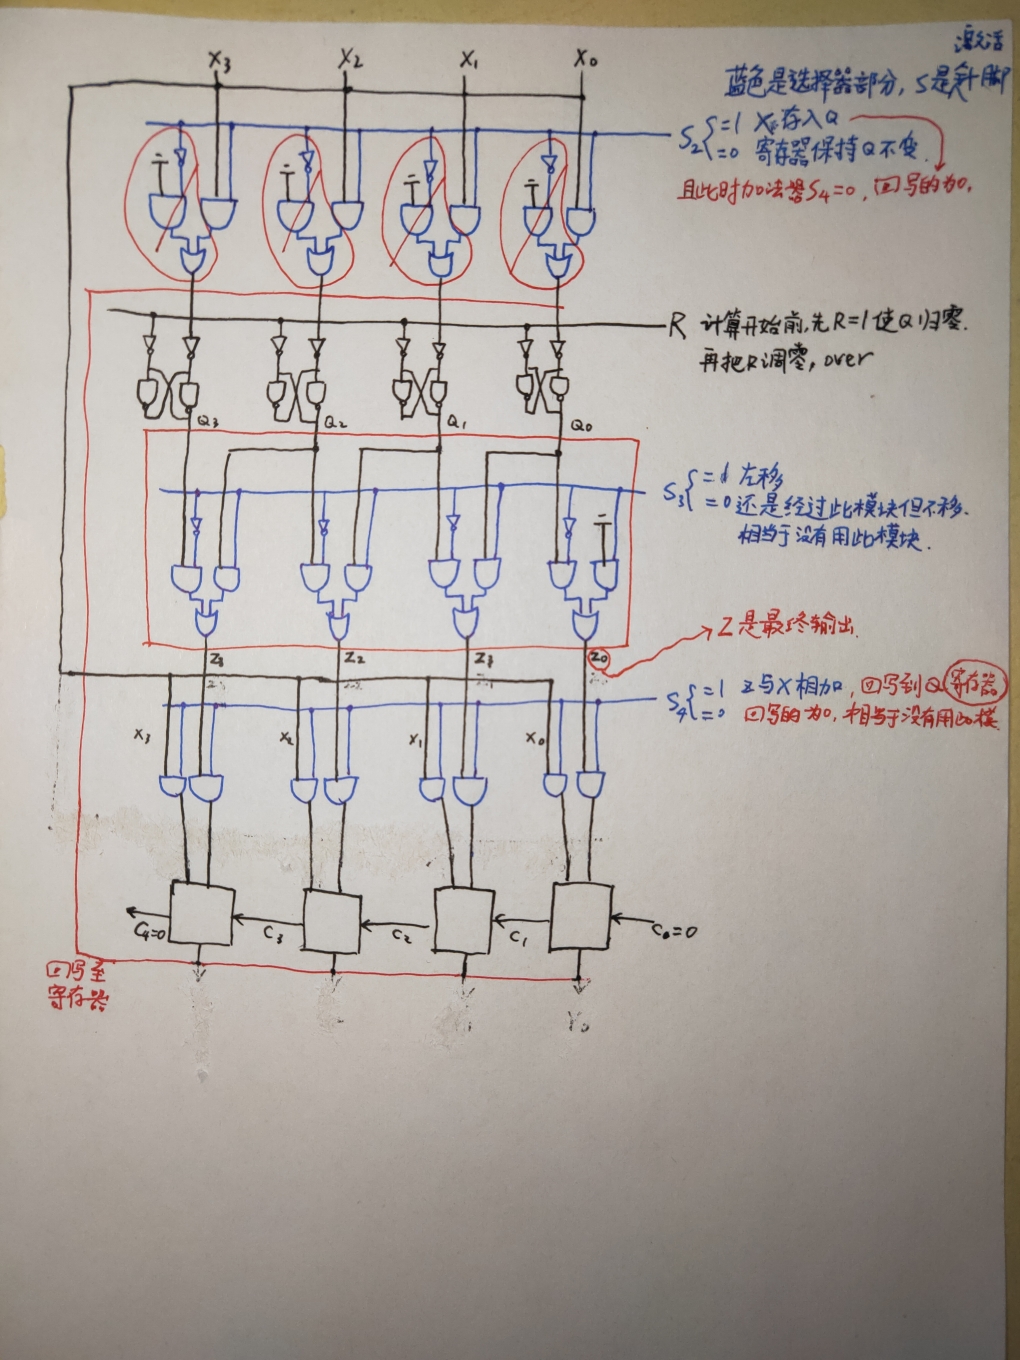 激活
X3 X2 X1 X0
蓝色是选择器部分, S是针脚
S2 =1 X存入Q
=0 寄存器保持Q不变.
且此时加法器S4=0, 回写的为0.
R 计算开始前,先R=1使Q归零.
再把R调零, over
Q3 Q2 Q1 Q0
S3 =1 左移
=0 还是经过此模块但不移.
相当于没有用此模块.
Z是最终输出.
Z3 Z2 Z1 Z0
S4 =1 Z与X相加, 回写到Q寄存器
=0 回写的为0, 相当于没有用此模
X3 X2 X1 X0
C4=0 C3 C2 C1 C0=0
回写至
寄存器
Y0